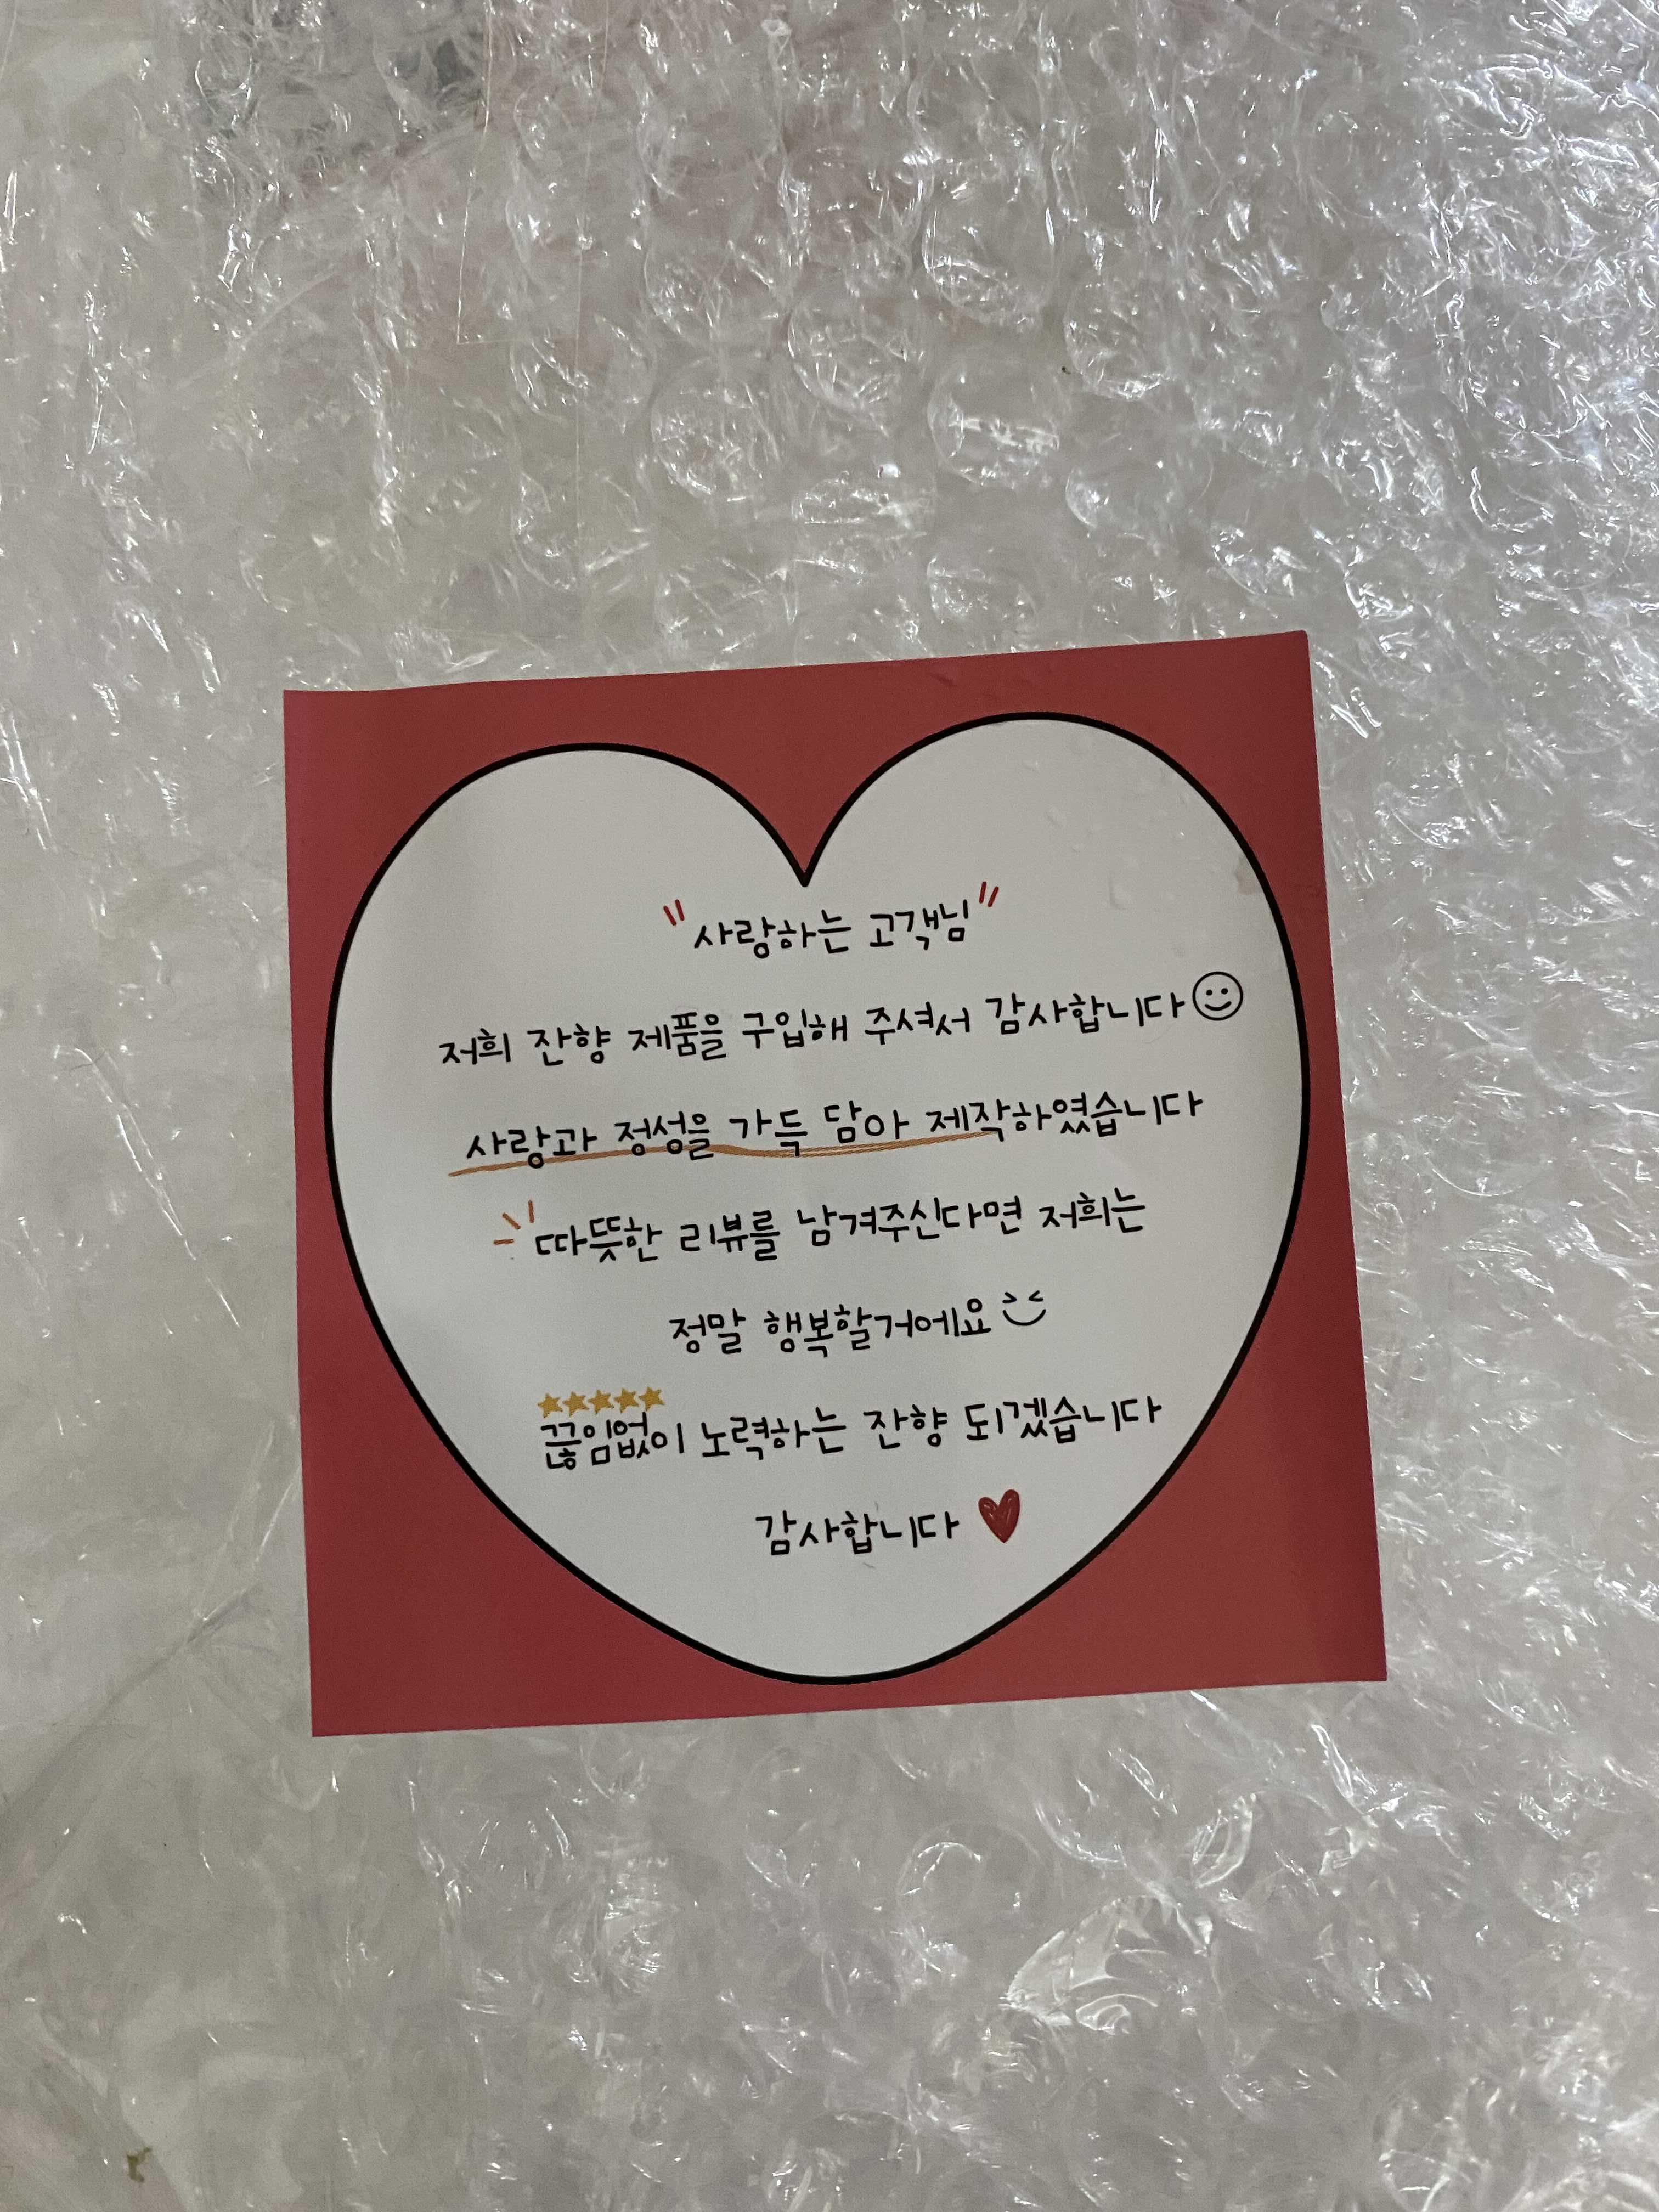 "사랑하는 고객님"
저희 잔향 제품을 구입해 주셔서 감사합니다
사랑과 정성을 가득 담아 제작하였습니다
따뜻한 리뷰를 남겨주신다면 저희는
정말 행복할거에요
끊임없이 노력하는 잔향 되겠습니다
감사합니다